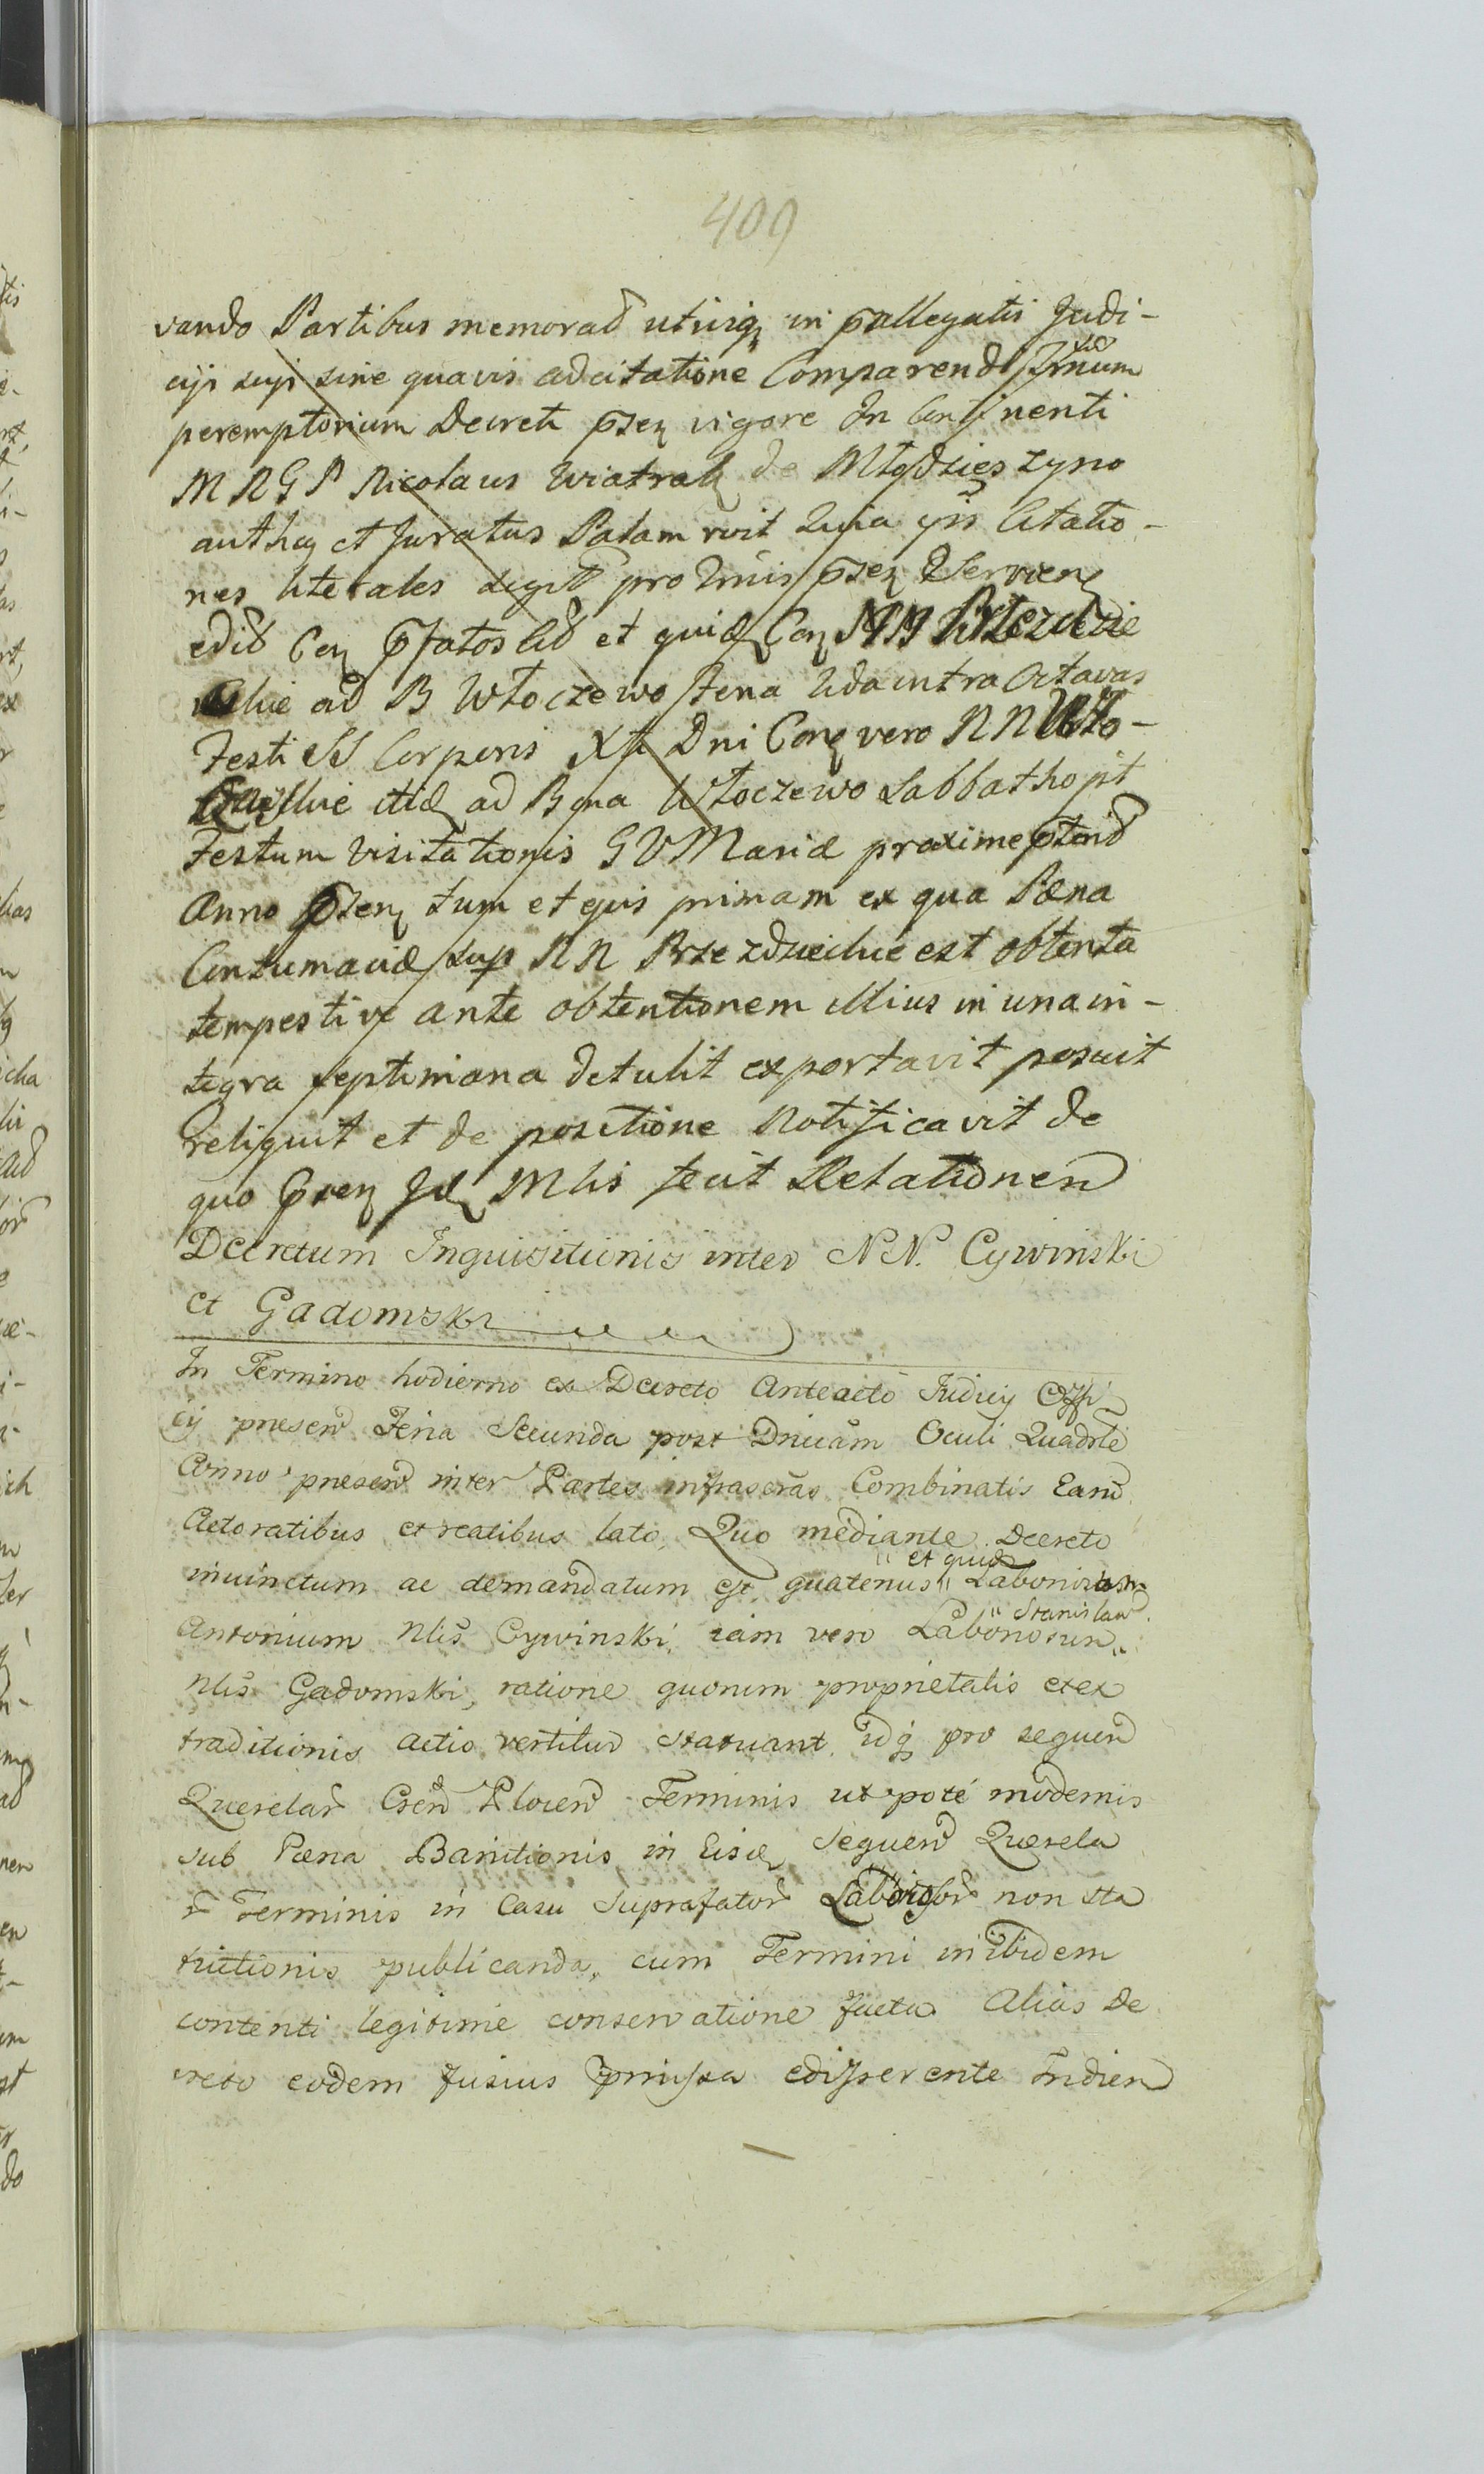 409
vando Partibus memorad utrisq in pallegatis Judi-
cijs suis sine quavis adcitatione Comparend Trnum
peremptorium Decreti psen vigore In Continenti
M R G P Nicolaus Wiatrak de Młodzieszyno
authen et Juratus Palam roit Quia ipse Citatio-
nes literales pro Tmis psen Servien
edit Con pfatos Cit et quid Con NN Brzezdzie
ckie ad B Włoczewo feria 2da intra Octavas
Festi SS Corporis Xti Dni Con vero NN Wło-
ckie itid ad Bona Włoczewo Sabbatho pt
Festum Visitationis G V Mariæ proxime pterit
Anno psen tum et ejus primam ex qua Pæna
Contumaciæ sup NN Brzezdzieckie est obtenta
tempestive ante obtentionem illius in una in-
tegra septimana detulit exportavit posuit
reliquit et de positione Notificavit de
quo psen Jd Mlis fecit Relationem
Decretum Inquisitionis inter NN. Cywinski
et Gadomski
In Termino hodierno ex Decreto Anteacto Judicij Offi
cij presen Feria Secunda post Dnicam Oculi Quadrle
Anno presen inter Partes infrascras Combinatis Earud
Actoratibus et reatibus lato, Quo mediante Decreto
iniunctum ac demandatum est, quatenus " et quid " Laboriosum
Antonium Nlis Cywinski, iam vero Laboriosum " Stanislaum "
Nlis Gadomski, ratione quorum proprietatis et ex
traditionis actio vertitur statuant idq pro sequen
Querelar Csen Plocen Terminis utpote modernis
sub Pæna Banitionis in Eisd Sequen Querela
r Terminis in Casu Suprafator Laborisor non sta
tuitionis publicanda, cum Termini in ibidem
contenti legitime conservatione facta Alias De
creto eodem fusius pmissa edisserente Indien